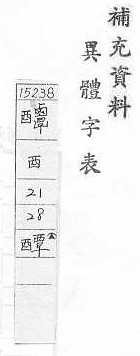 補充資料
異體字表
15238
酉
21
28
醰